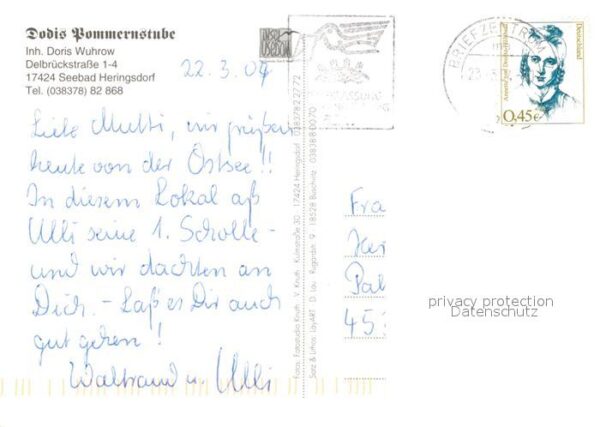 Dodis Pommernstube
Inh. Doris Wuhrow
Delbrückstraße 1-4
17424 Seebad Heringsdorf
Tel. (038378) 82 868
22.3.04
Liebe Mutti, wir grüßen
heute von der Ostsee!!
In diesem Lokal aß
Ulli seine 1. Scholle -
und wir dachten an
Dich. - Laß es Dir auch
gut gehen!
Waltraud u. Ulli
Foto: Fotostudio Knuth · V. Knuth · Kulmstraße 30 · 17424 Heringsdorf · 038378 2 2772
Satz & Lithos: LayART · D. Lau · 18528 Buschvitz
BRIEFZENTRUM
Deutschland
0,45€
Fra
Pal
45
privacy protection
Datenschutz